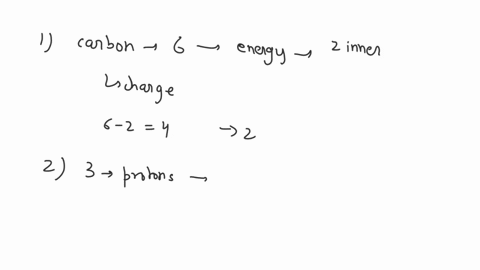 1) carbon → 6 → energy → 2 inner
↳ charge
6-2 = 4 → 2
2) 3 → protons →